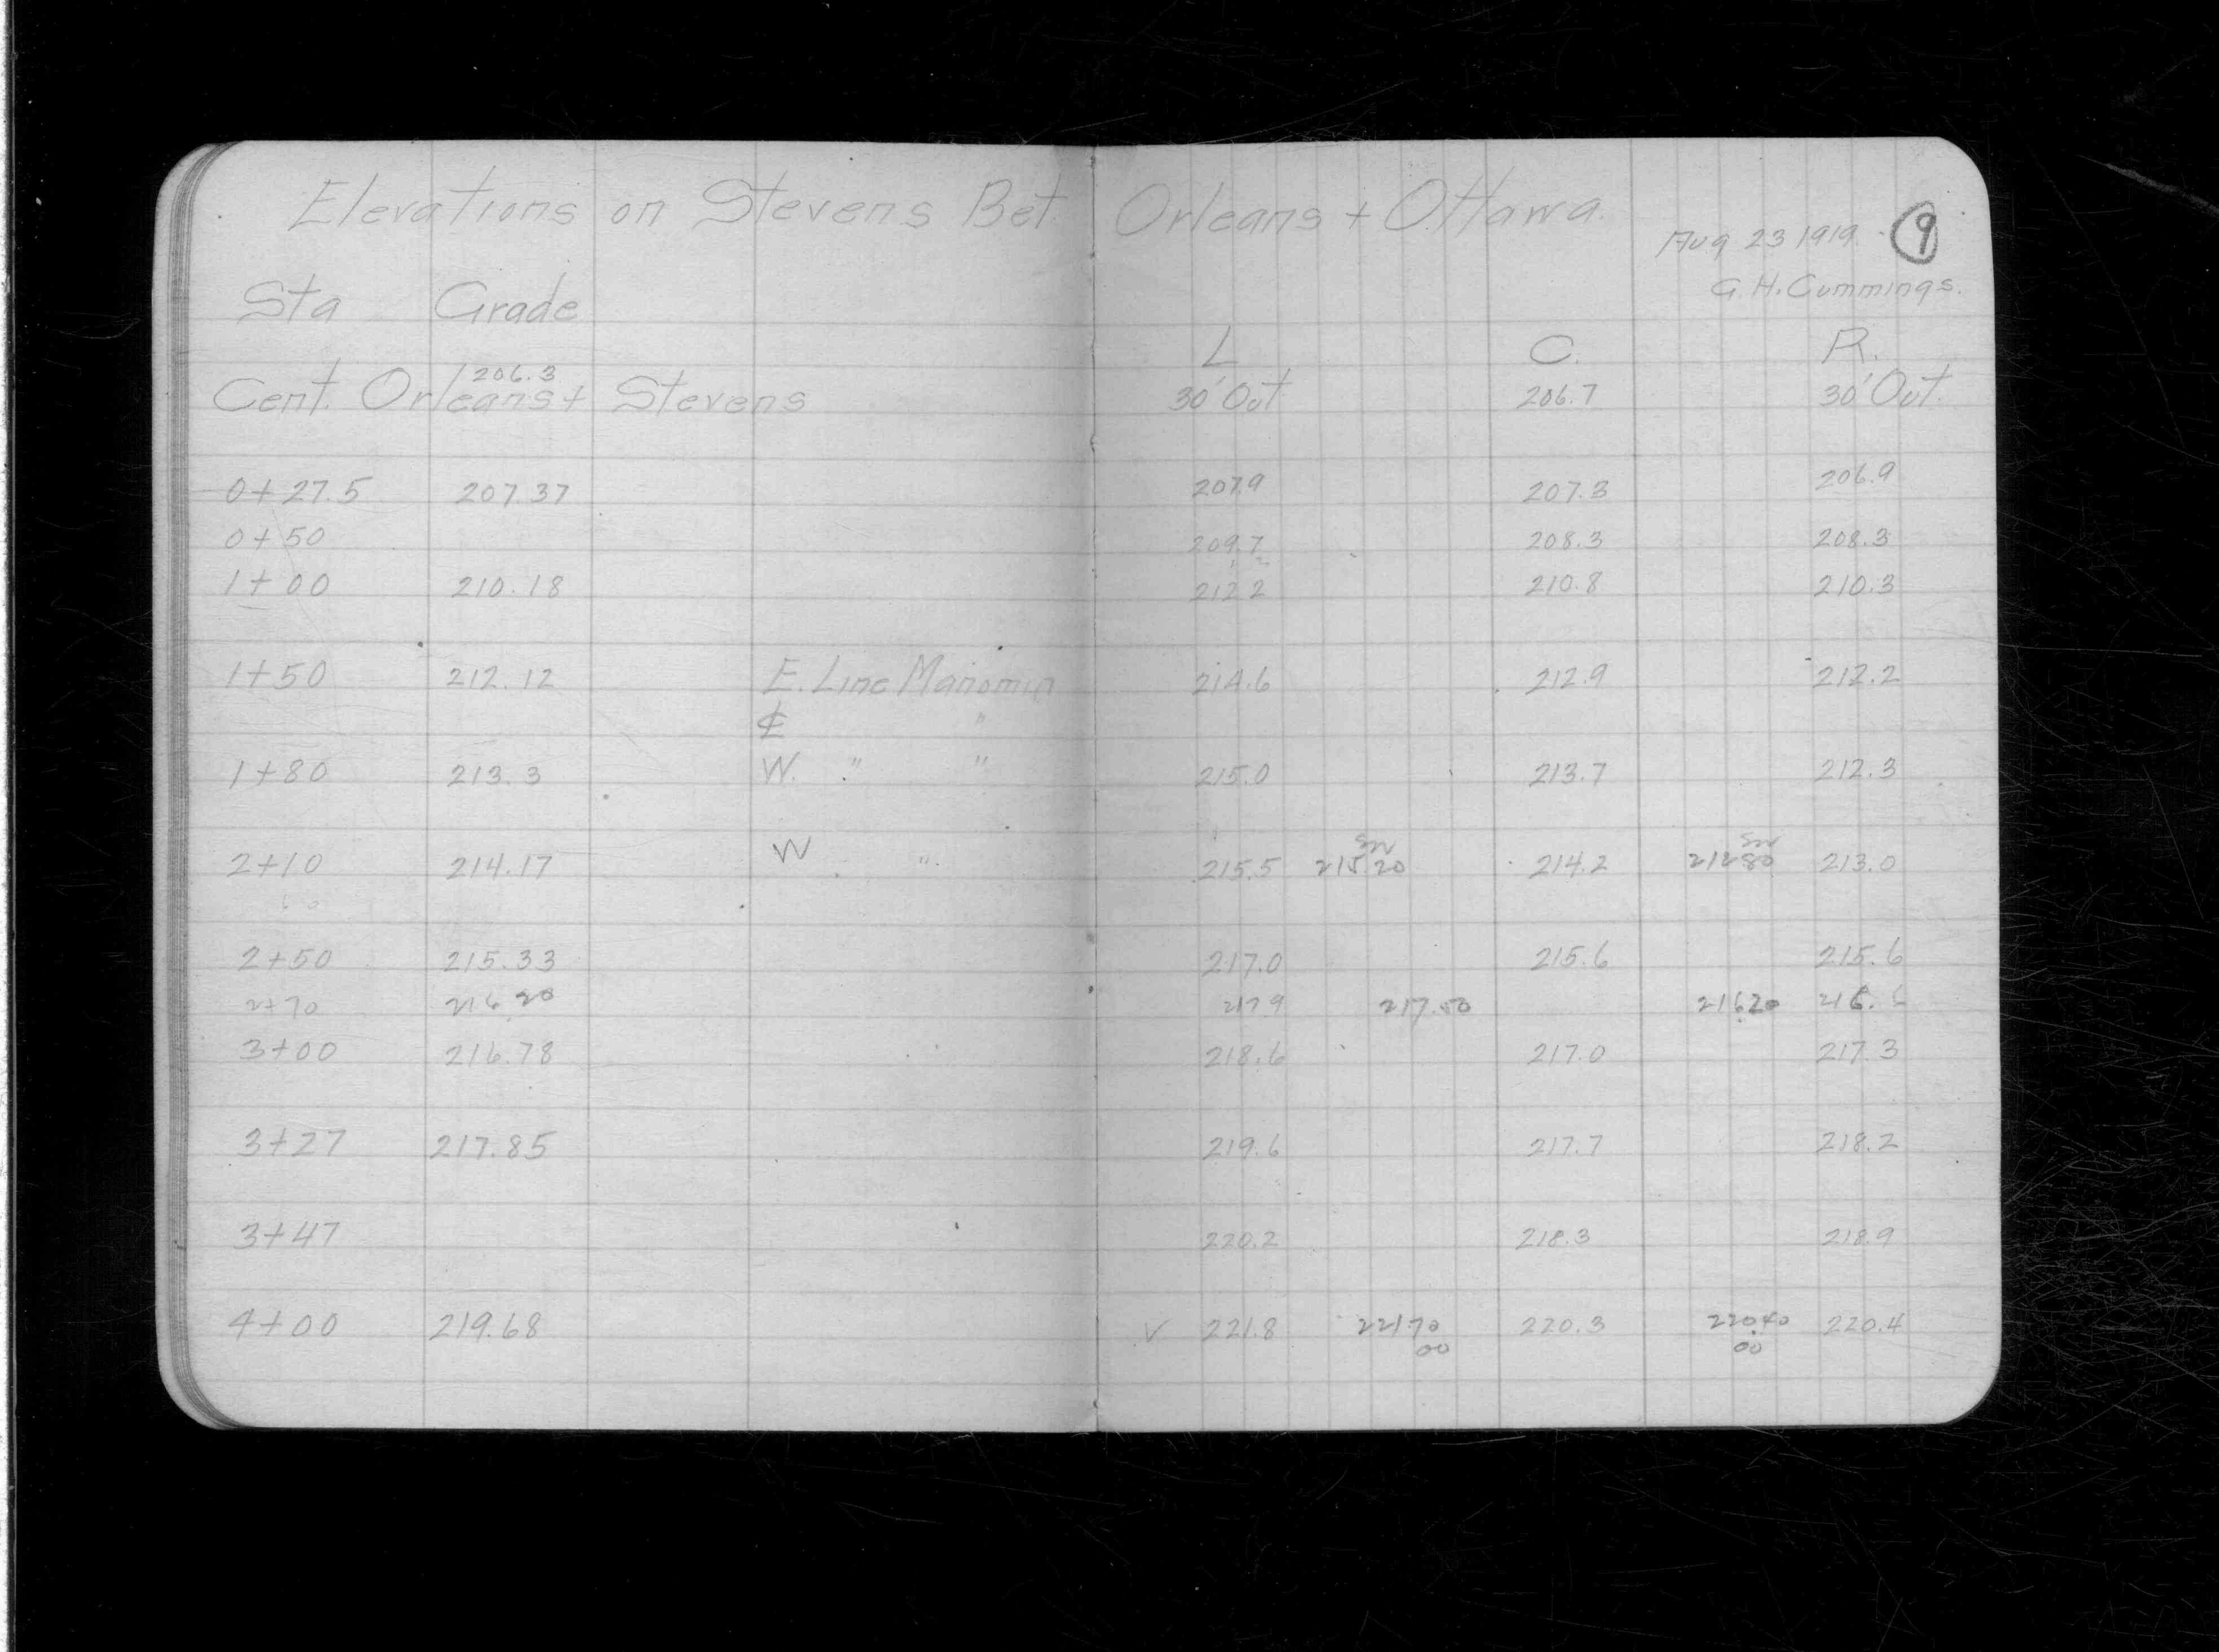 Elevations on Stevens Bet. Orleans + Ottawa.
Aug 23 1919 9
G.H. Cummings.
Sta Grade
L C. R.
206.3
Cent. Orleans + Stevens 30' Out 206.7 30' Out.
0+27.5 207.37 207.9 207.3 206.9
0+50 209.7 208.3 208.3
1+00 210.18 212.2 210.8 210.3
1+50 212.12 E. Line Manomin 214.6 212.9 212.2
₵ "
1+80 213.3 W. " " 215.0 213.7 212.3
2+10 214.17 W " 215.5 215.20 214.2 212.80 213.0
2+50 215.33 217.0 215.6 215.6
2+70 216.20 217.9 217.50 216.20 216.6
3+00 216.78 218.6 217.0 217.3
3+27 217.85 219.6 217.7 218.2
3+47 220.2 218.3 218.9
4+00 219.68 √ 221.8 221.70 220.3 220.40 220.4
00 00